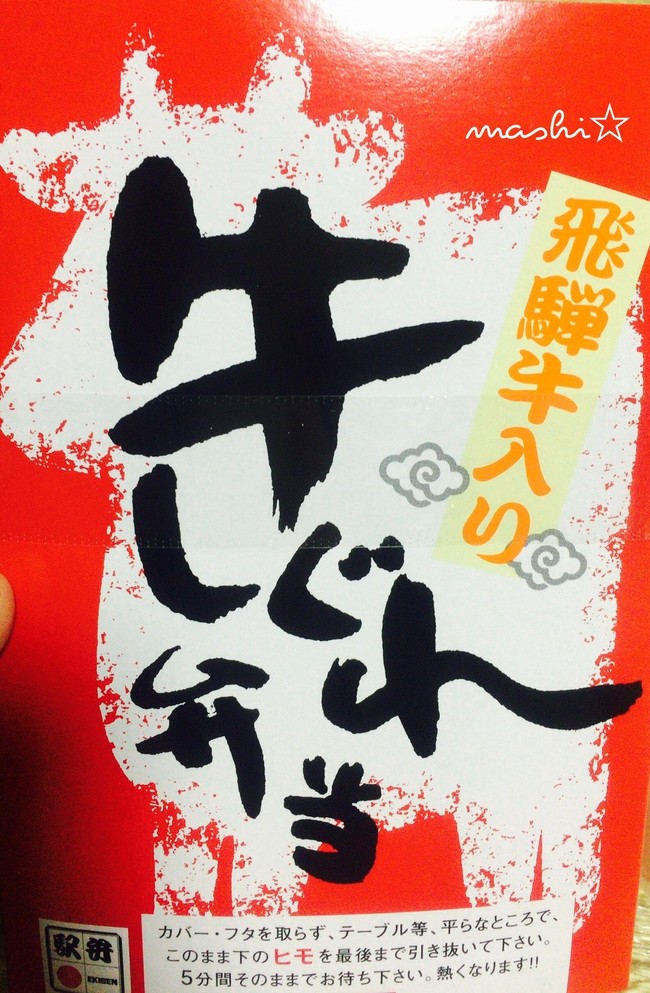 mashi☆
飛騨牛入り
牛しぐれ
弁当
駅弁
EKIBEN
カバー・フタを取らず、テーブル等、平らなところで、
このまま下のヒモを最後まで引き抜いて下さい。
5分間そのままでお待ち下さい。熱くなります!!